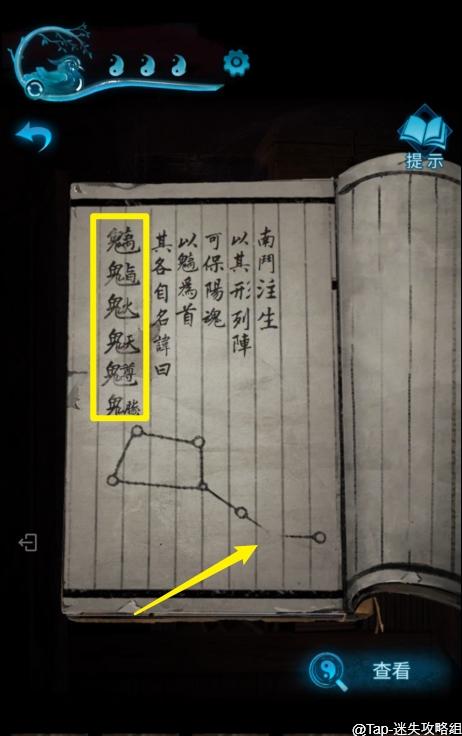 提示
南鬥注生
以其形列陣
可保陽魂
以為首
其各自名諱曰
查看
@Tap-迷失攻略組